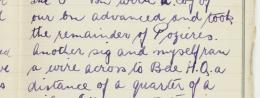 our bn advanced and took
the remainder of Pozieres.
Another sig and myself ran
a wire across to Bde H.Q. a
distance of a quarter of a